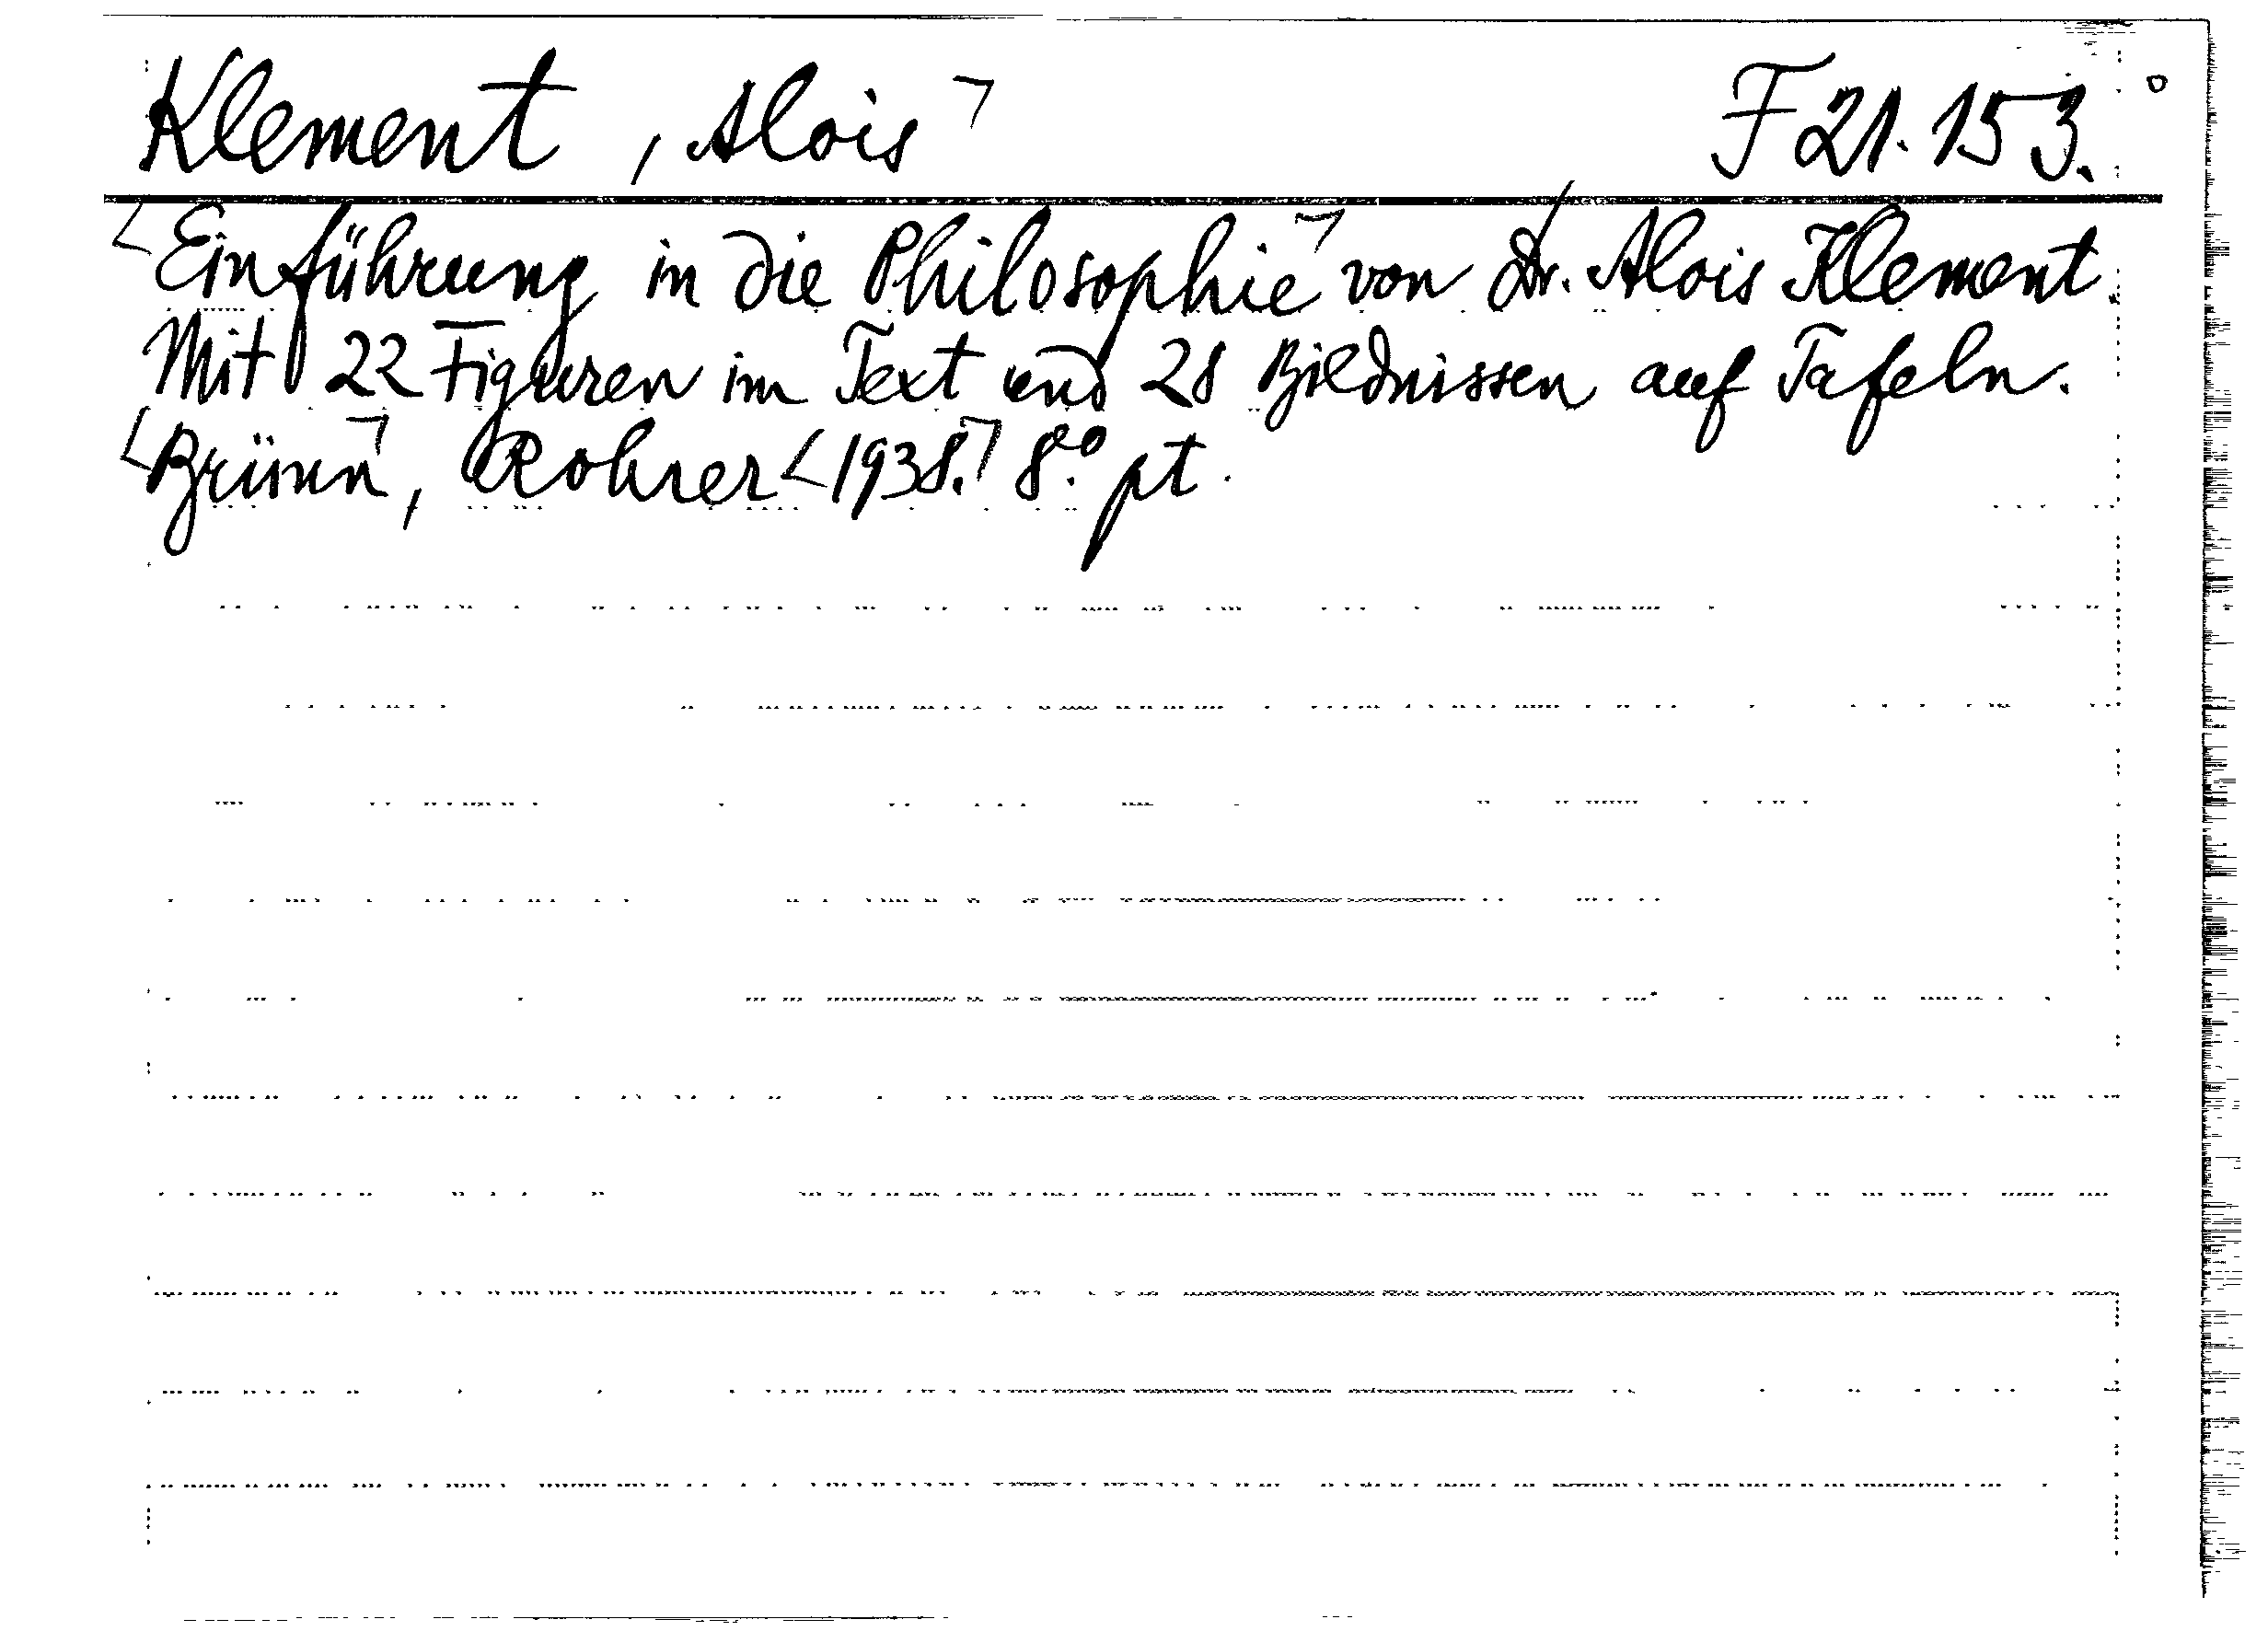 Klement, Alois F 21.153.
Einführung in die Philosophie von Dr. Alois Klement.
Mit 22 Figuren im Text und 28 Bildnissen auf Tafeln.
Brünn, Rohrer 1938. 8º pt.